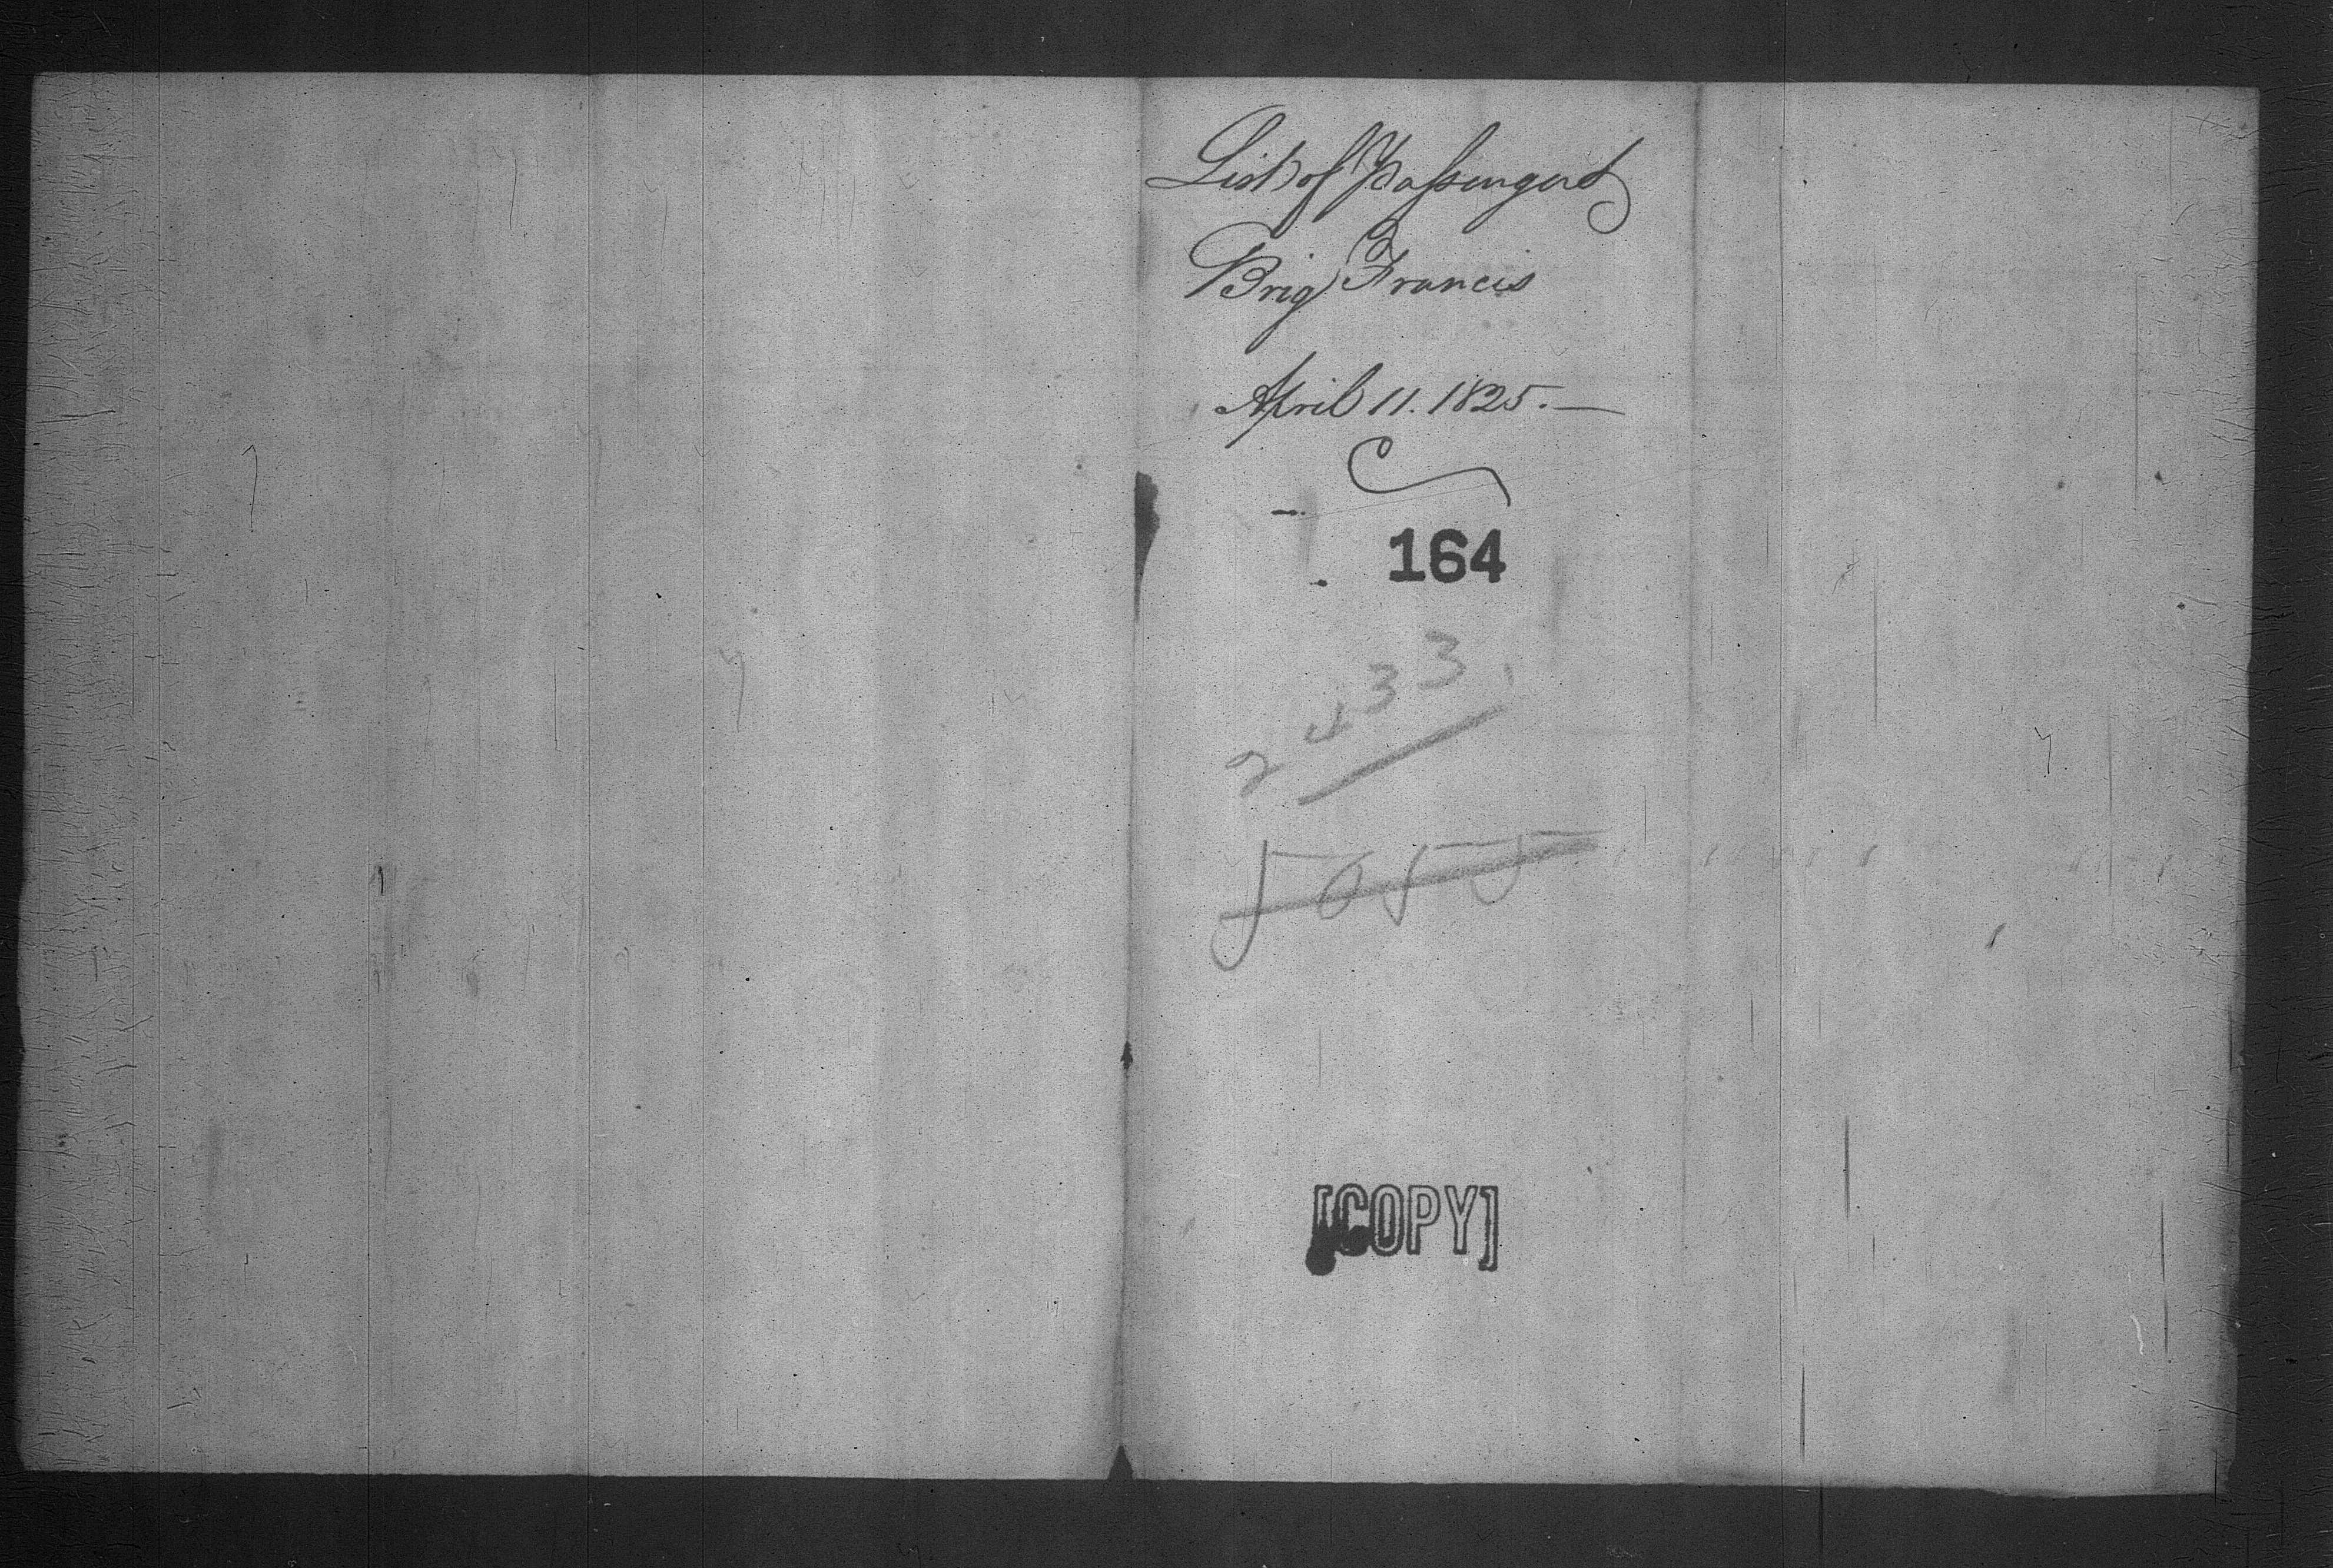 List of Passengers
Brig Francis
April 11. 1825.—
164
2433
5055
[COPY]